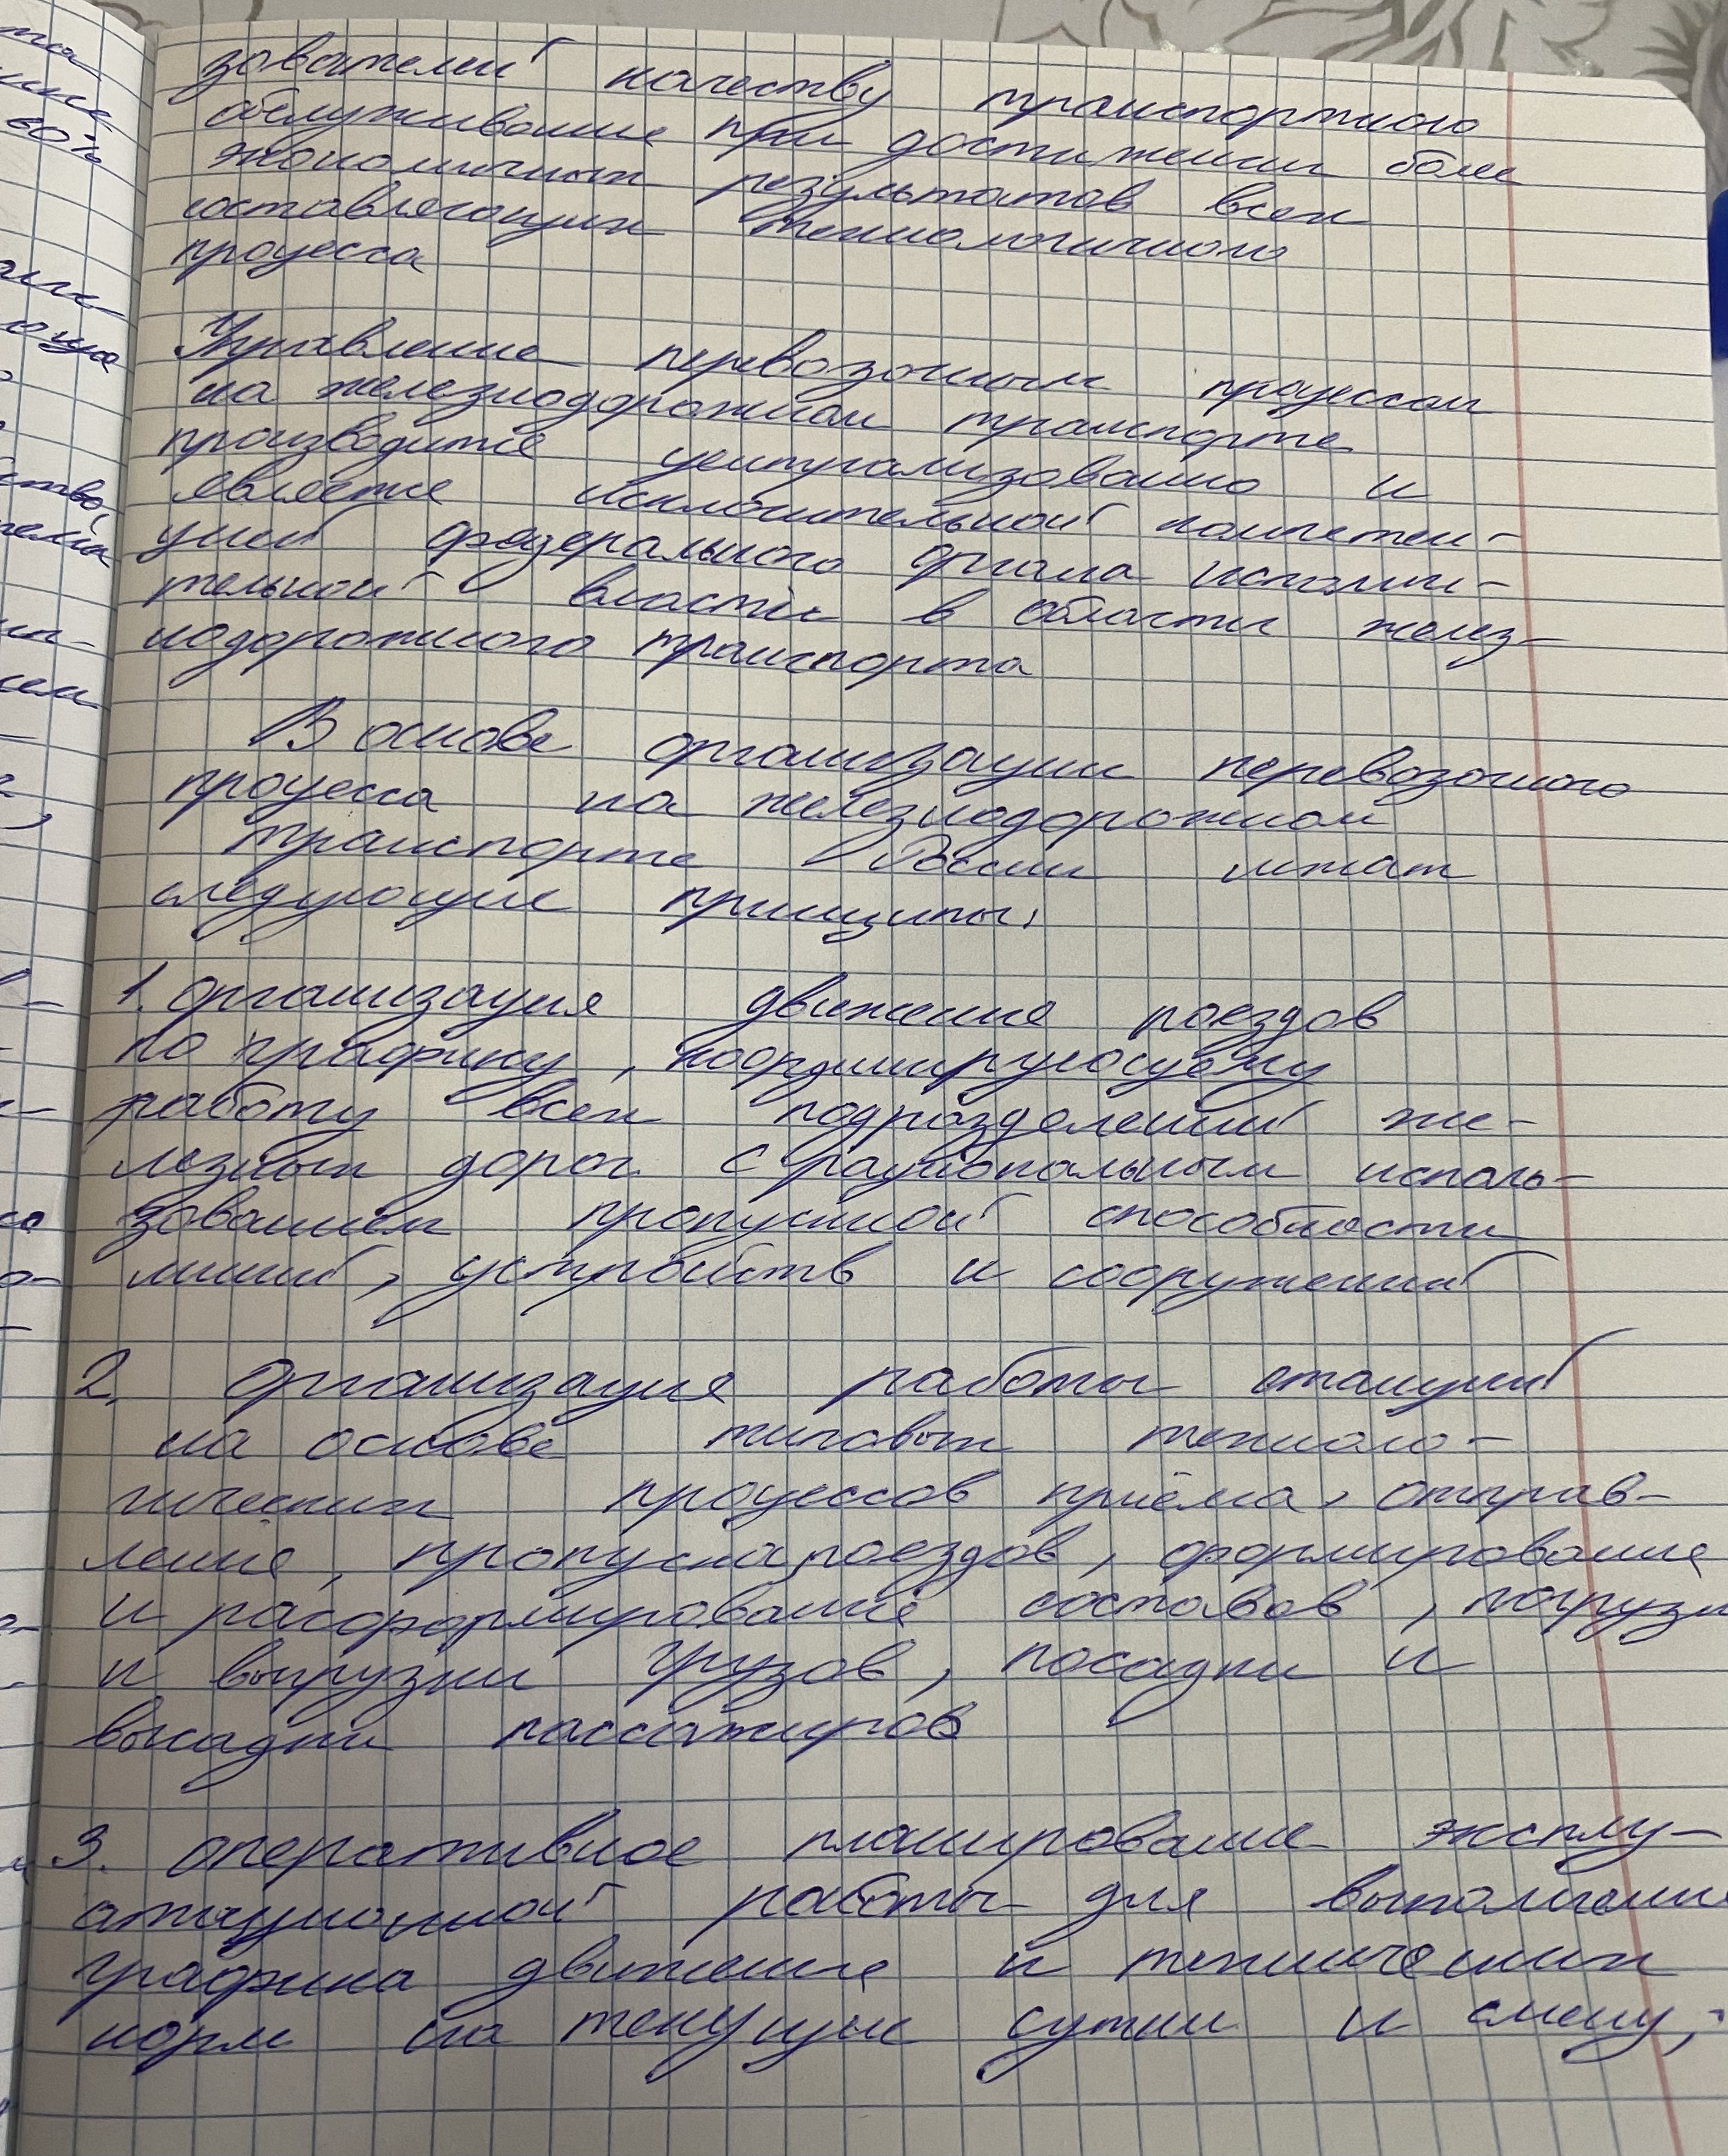 зователей качеству транспортного
обслуживание при достижении более
экономичных результатов всех
составляющих технологичного
процесса
Управление перевозочным процессом
на железнодорожном транспорте
производится централизованно и
является исключительной компетен-
цией федерального органа исполни-
тельной власти в области желез-
нодорожного транспорта
В основе организации перевозочного
процесса на железнодорожном
транспорте России лежат
следующие принципы:
1. организация движение поездов
по графику, координирующему
работу всех подразделений же-
лезных дорог с рациональным исполь-
зованием пропускной способности
линий, устройств и сооружений
2. Организация работы станций
на основе типовых техноло-
гических процессов приёма, отправ-
ление, пропуска поездов, формирование
и расформирование составов, погрузки
и выгрузки грузов, посадки и
высадки пассажиров
3. оперативное планирование эксплу-
атационной работы для выполнения
графика движение и технических
норм на текущие сутки и смену;